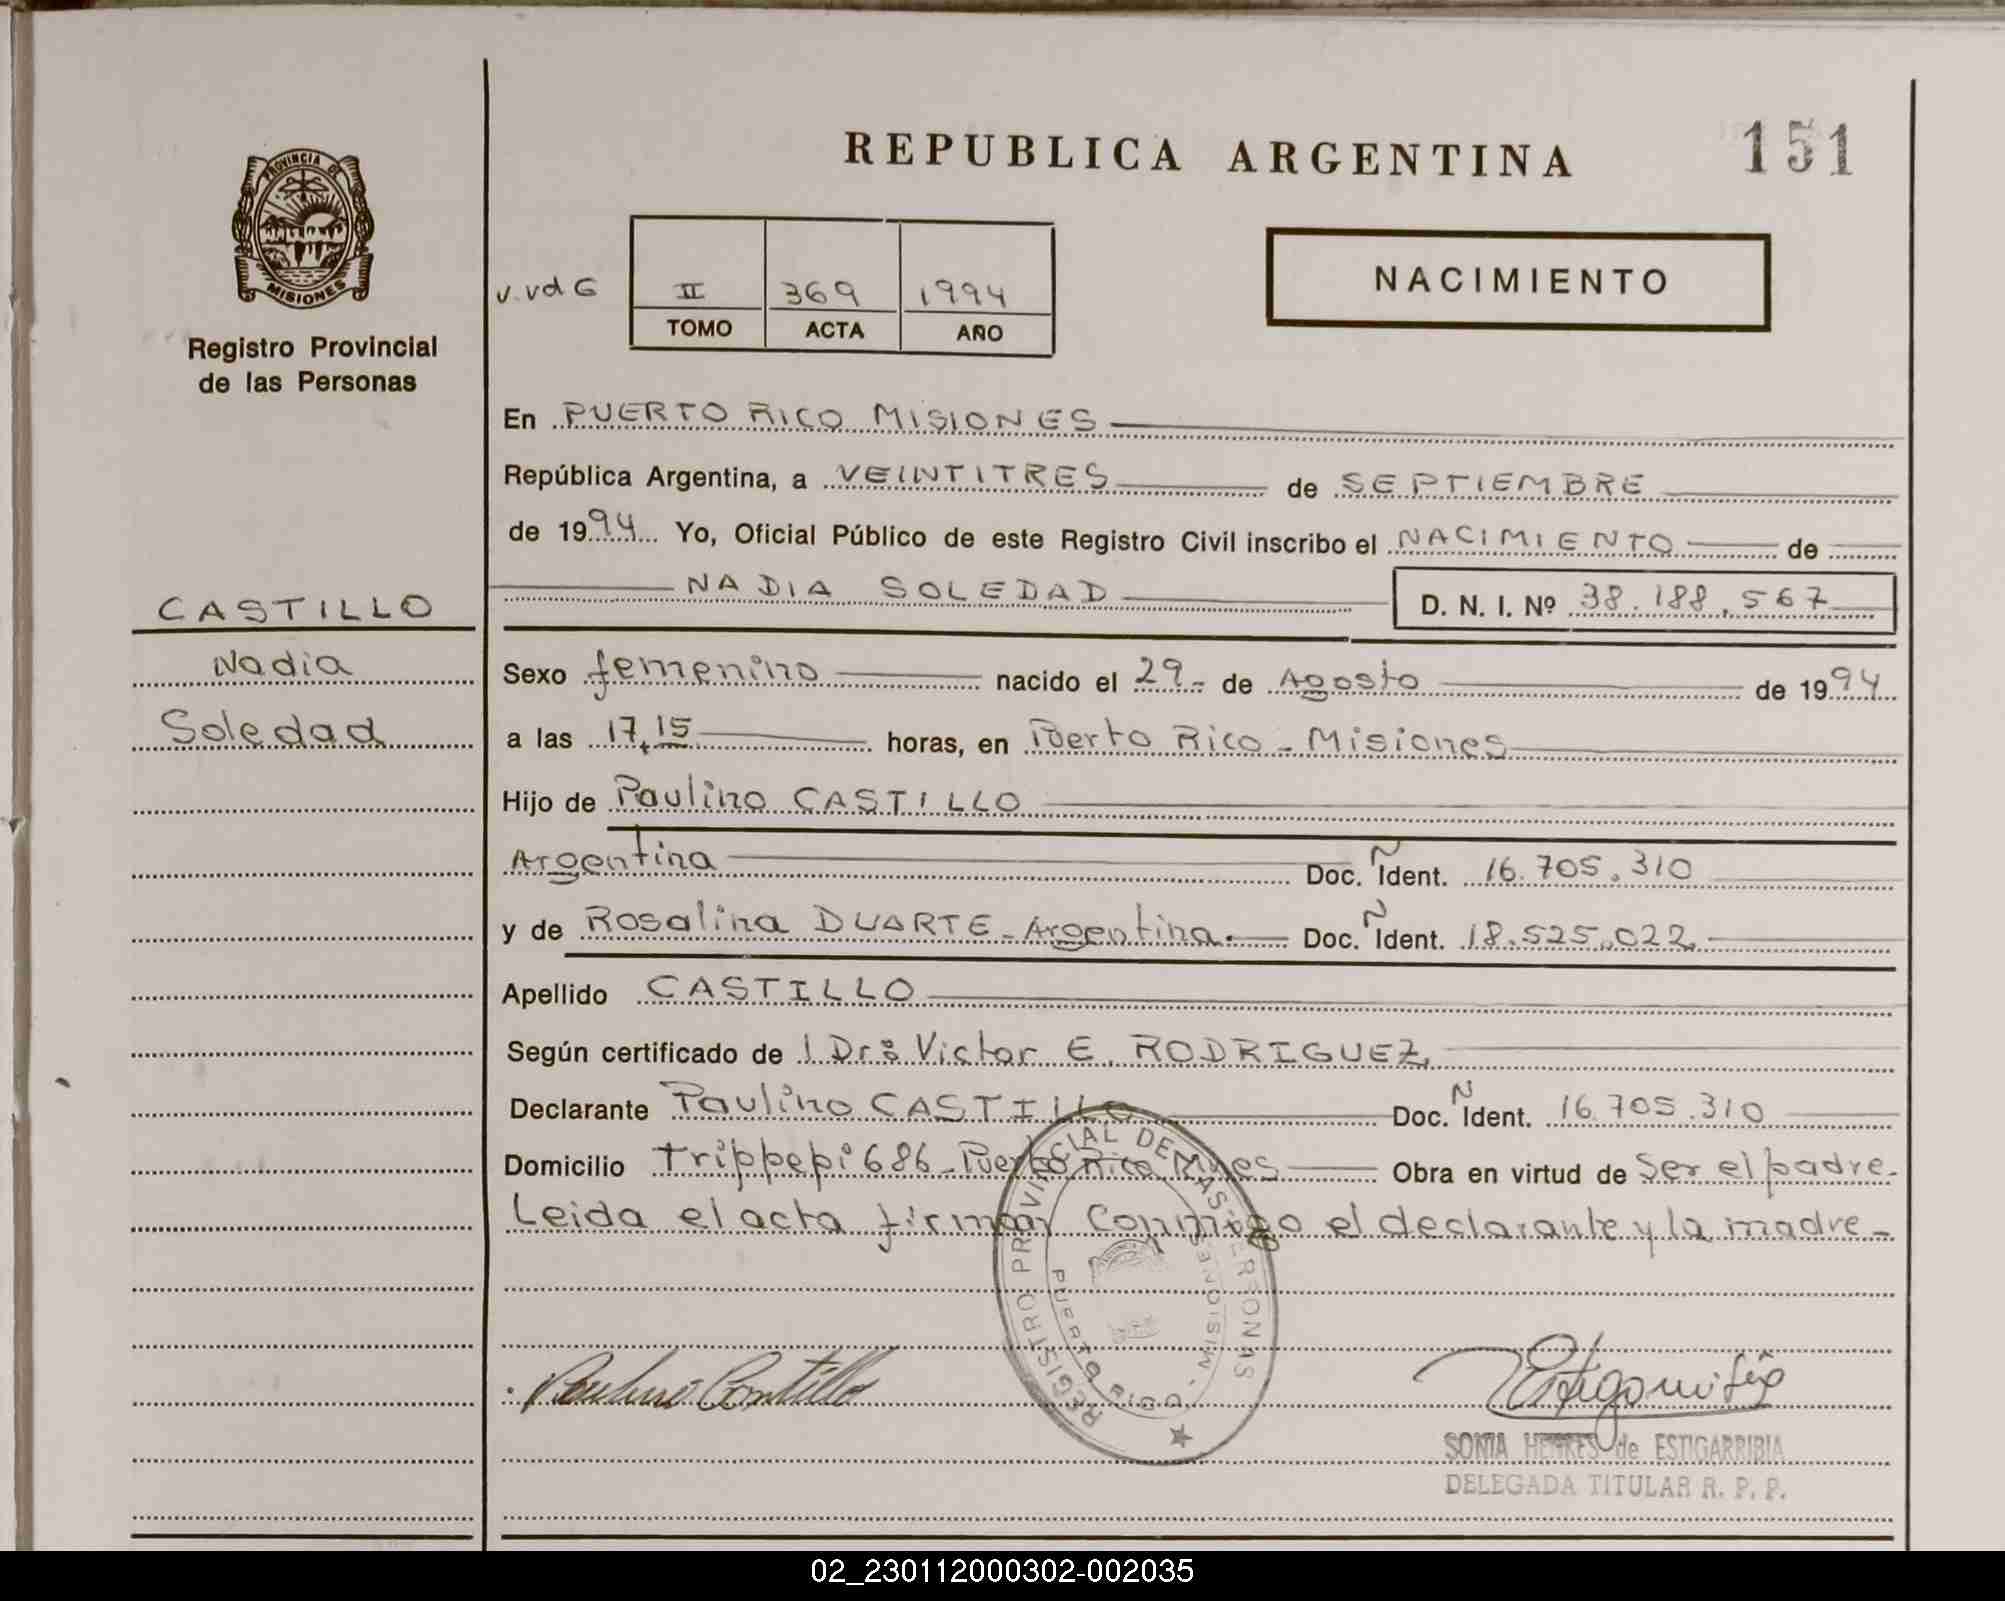 REPUBLICA ARGENTINA
151
PROVINCIA DE
MISIONES
Registro Provincial
de las Personas
v.vd G
II 369 1994
TOMO ACTA AÑO
NACIMIENTO
En PUERTO RICO MISIONES
República Argentina, a VEINTITRES de SEPTIEMBRE
de 1994 Yo, Oficial Público de este Registro Civil inscribo el NACIMIENTO de
NADIA SOLEDAD D. N. I. Nº 38.188.567
CASTILLO
Nadia
Soledad
Sexo femenino nacido el 29- de Agosto de 1994
a las 17,15 horas, en Puerto Rico - Misiones
Hijo de Paulino CASTILLO
Argentina Doc. Ñ Ident. 16.705.310
y de Rosalina DUARTE - Argentina. Doc. Ñ Ident. 18.525.022.
Apellido CASTILLO
Según certificado de Victor E. RODRIGUEZ.
Declarante Paulino CASTILLO Doc. Ñ Ident. 16.705.310
Domicilio Trippepi 686 - Puerto Rico Mnes Obra en virtud de Ser el padre.
Leida el acta firman Conmigo el declarante y la madre -
REGISTRO PROVINCIAL DE LAS PERSONAS
PUERTO RICO - MISIONES
Paulino Castillo
SONIA HENKES de ESTIGARRIBIA
DELEGADA TITULAR R. P. P.
02_230112000302-002035